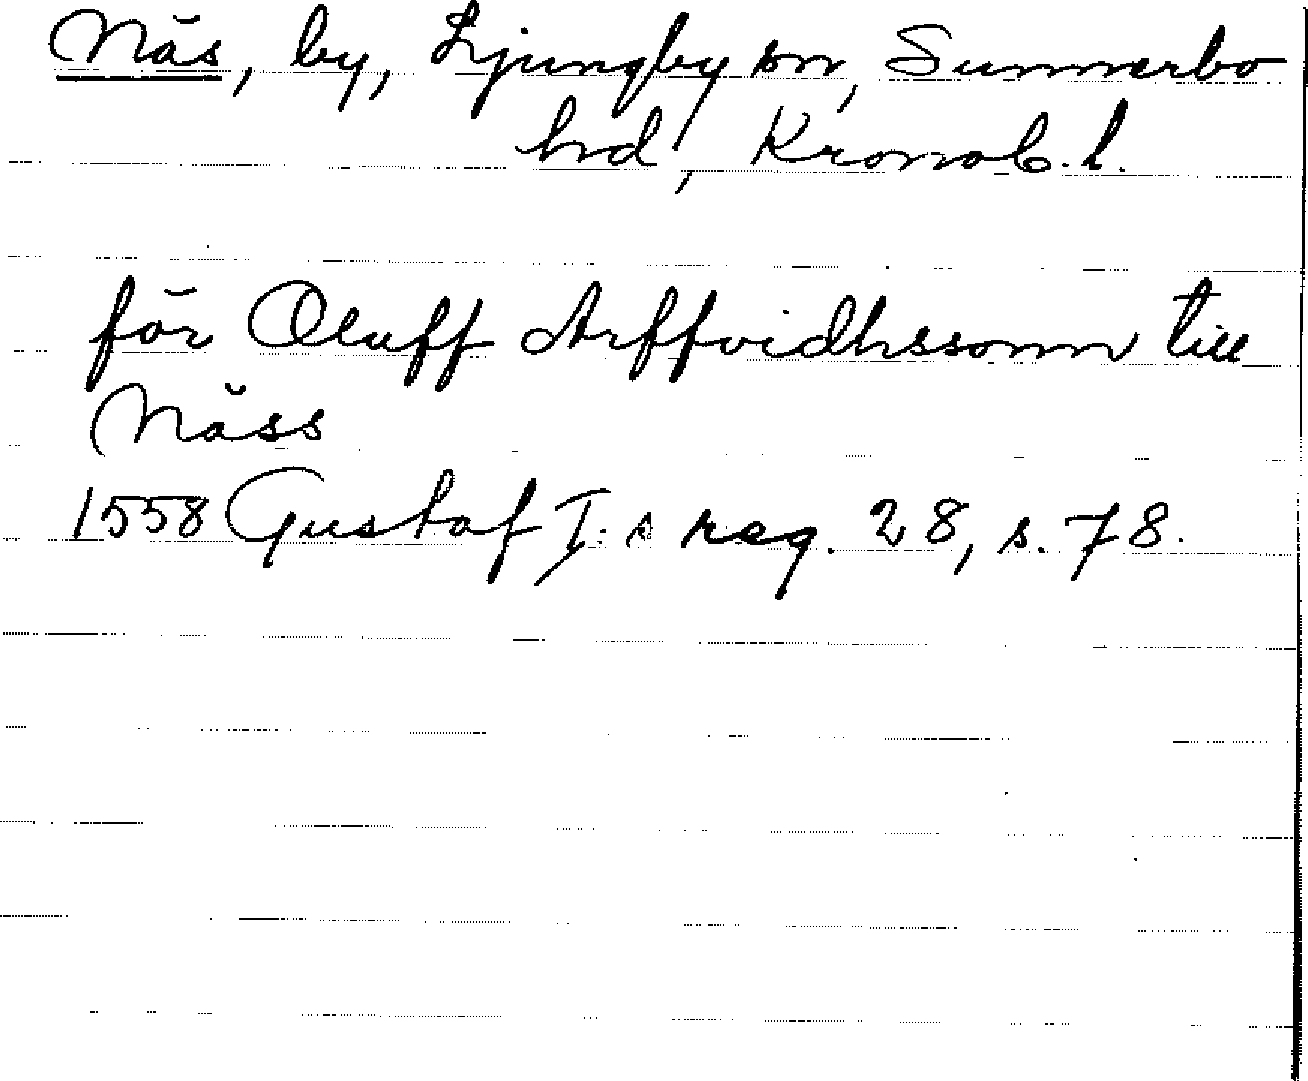 Näs, by, Ljungby sn, Sunnerbo
hrd, Kronob. l.
för Oluff Arffvidhssonn till
Näss
1558 Gustaf I:s reg. 28, s. 78.